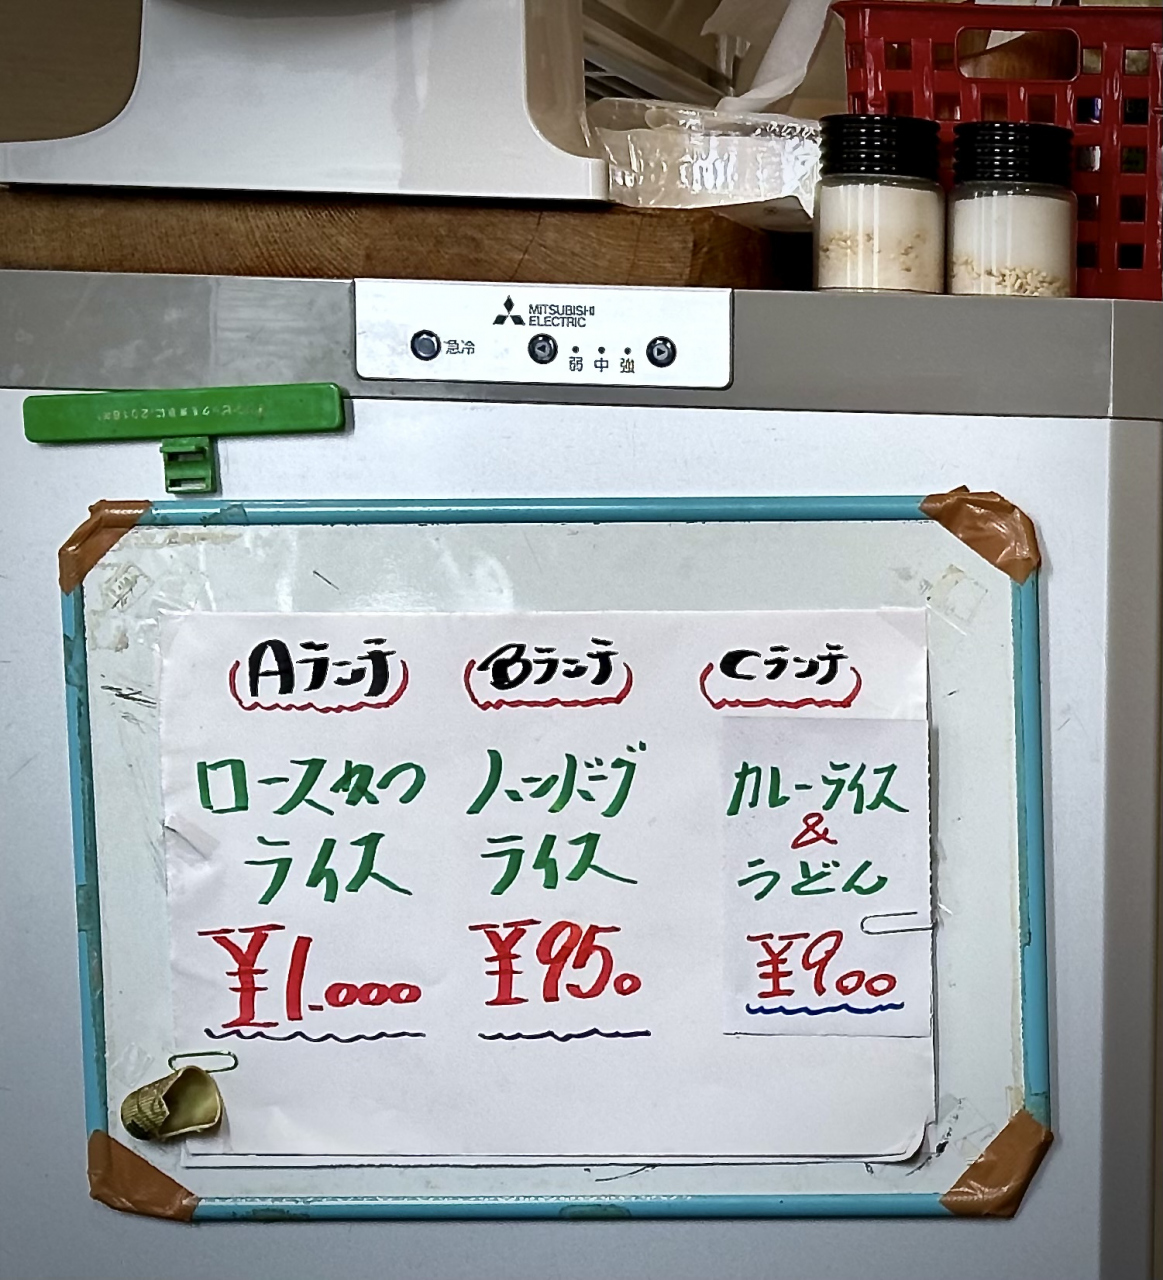 MITSUBISHI
ELECTRIC
急冷
弱 中 強
Aランチ
ロースカツ
ライス
¥1.000
Bランチ
ハンバーグ
ライス
¥950
Cランチ
カレーライス
&
うどん
¥900